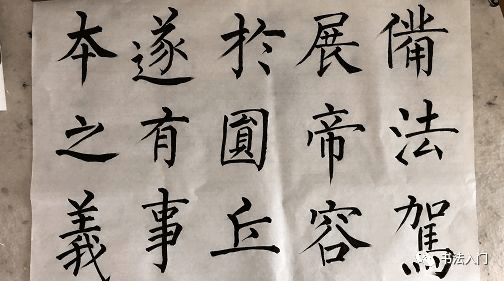 備法駕
展帝容
於圓丘
遂有事
夲之義
书法入门